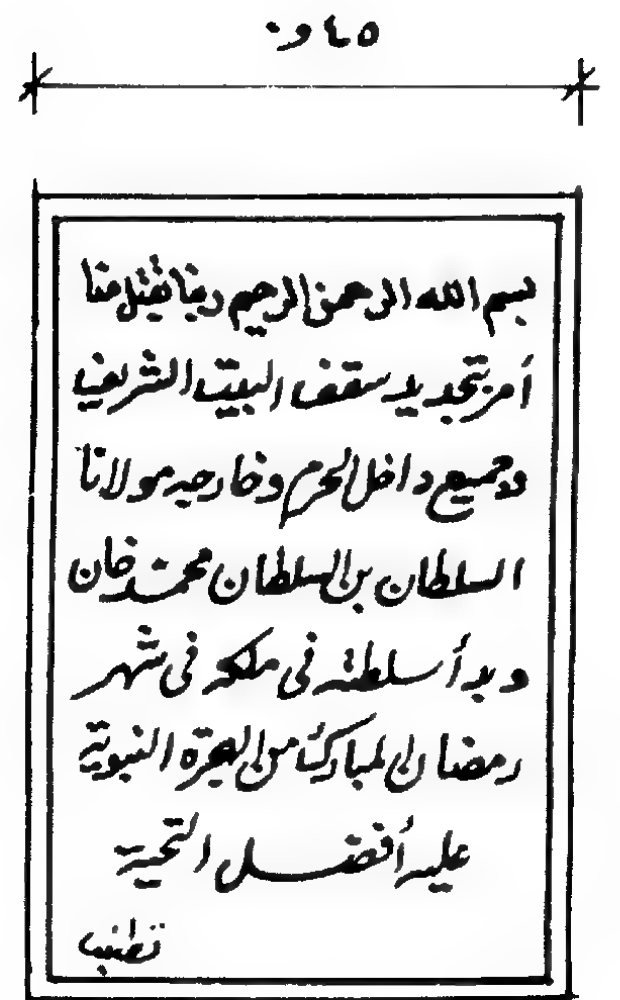 ٤٥ و٠
بسم الله الرحمن الرحيم ربنا تقبل منا
أمر بتجديد سقف البيت الشريف
وجميع داخل الحرم وخارجه مولانا
السلطان بن السلطان محمد خان
وبدأ سلطته في مكه في شهر
رمضان المبارك من الهجرة النبوية
عليه أفضل التحية